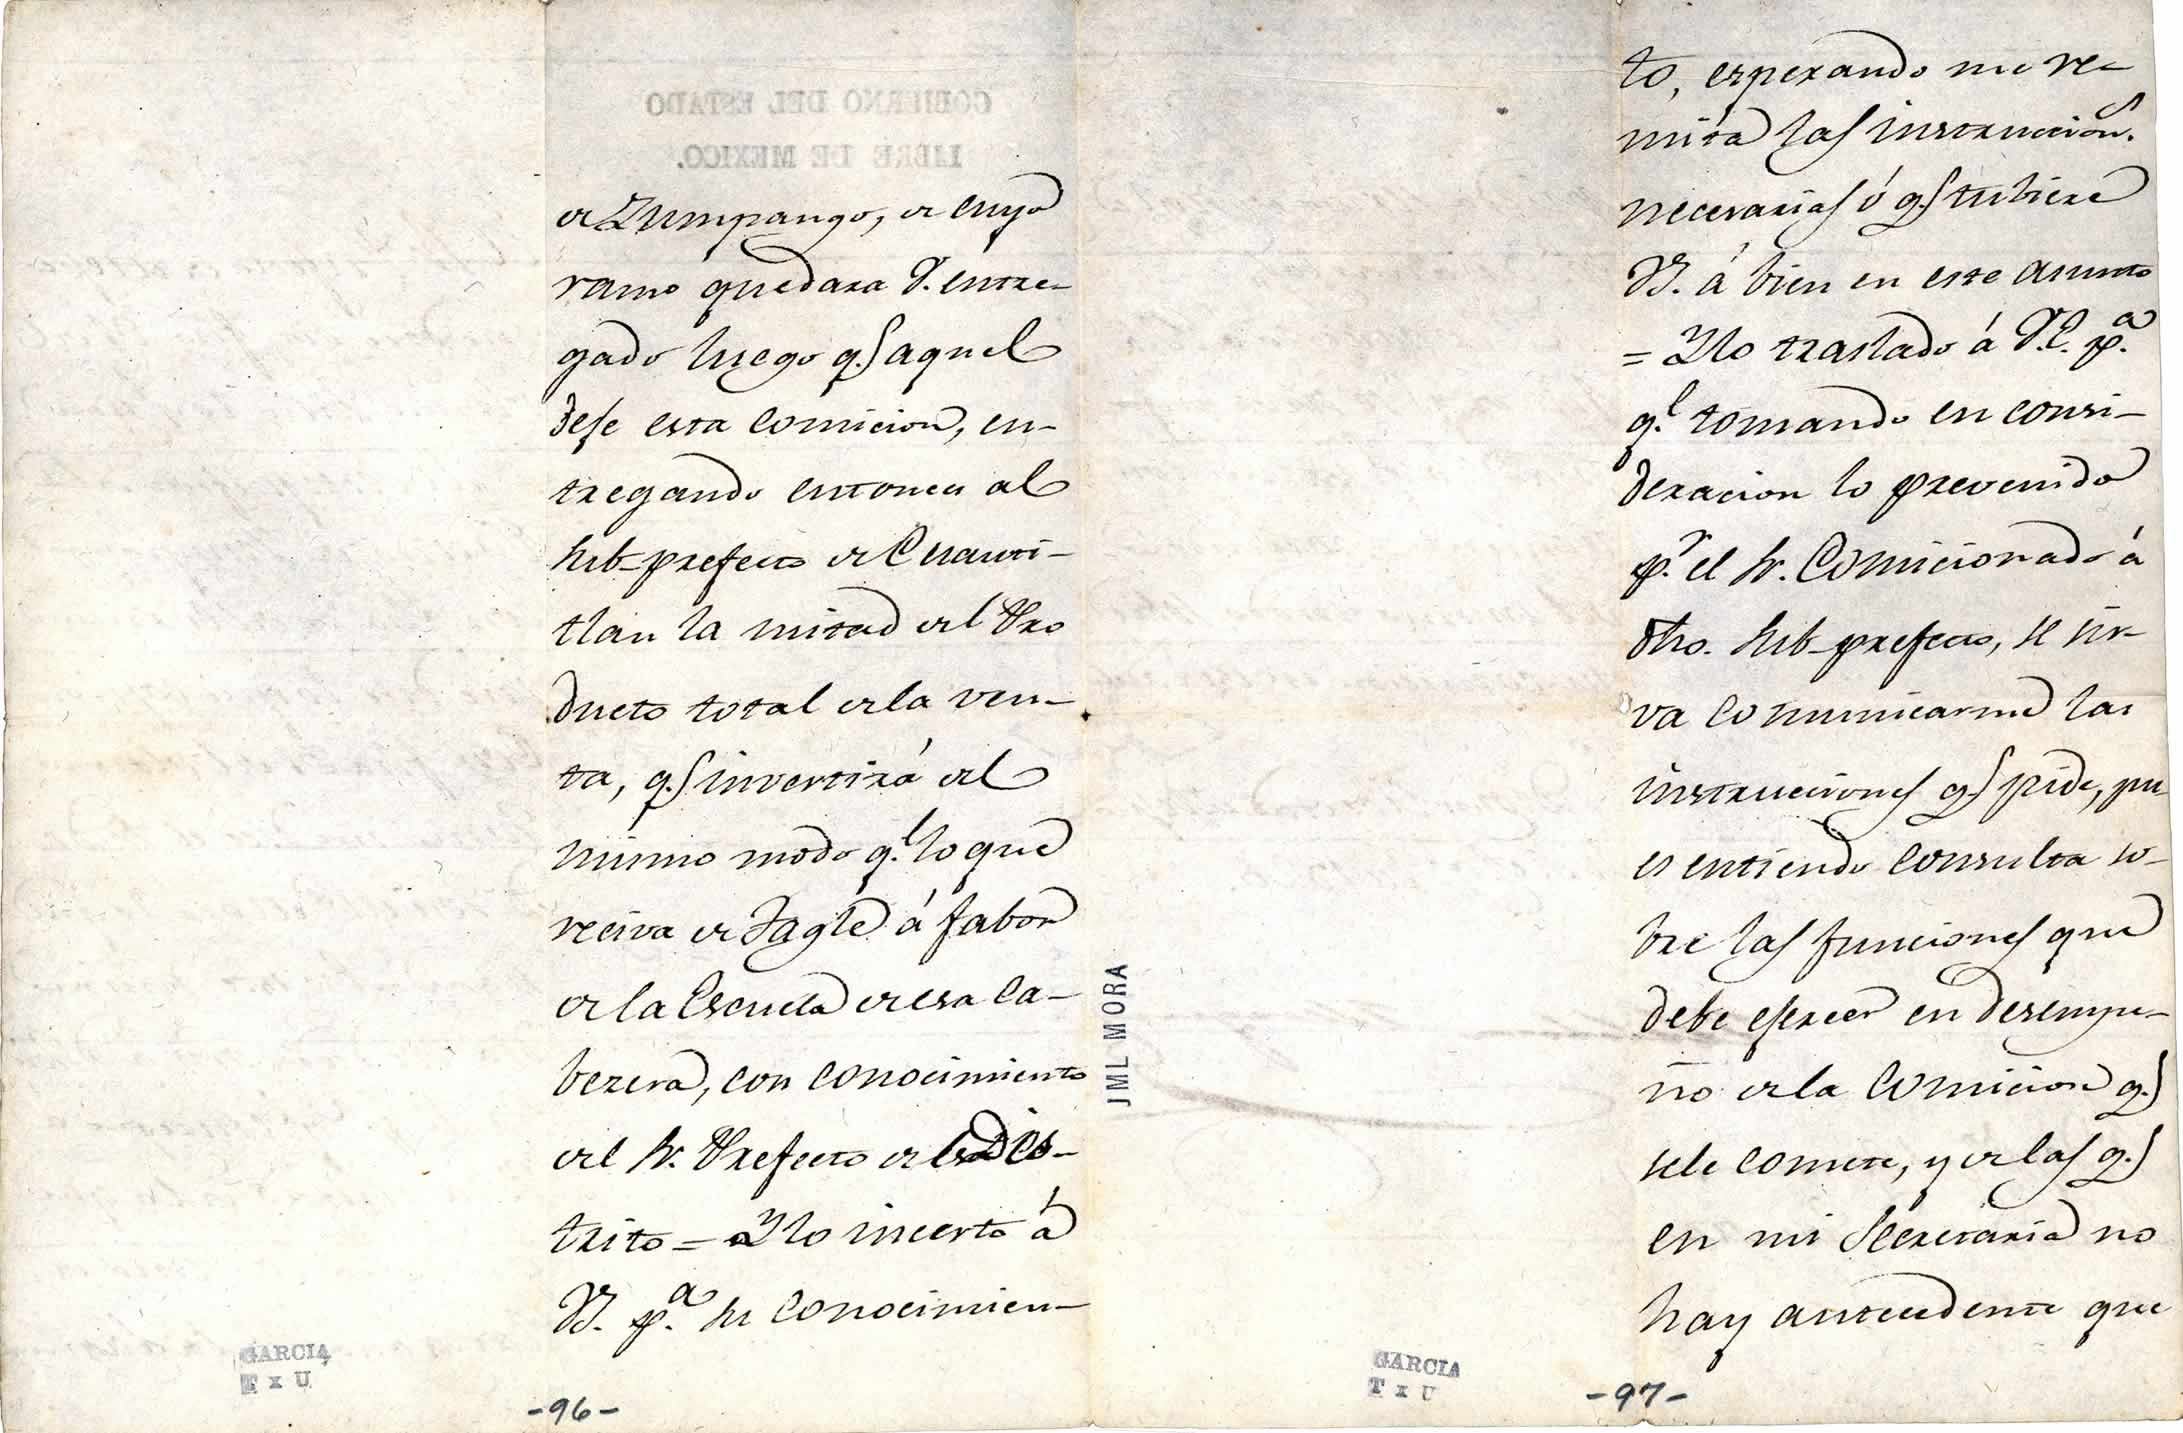 GOBIERNO DEL ESTADO
LIBRE DE MEXICO.
de Zumpango, de cuyo
ramo quedara V. entre-
gado luego q.e aquel
deje esta comicion, en-
tregando entonces al
sub-prefecto de Cuauti-
tlan la mitad del Pro
ducto total de la ven-
ta, q.e invertirá del
mismo modo q.e lo que
reciva de Tagle á fabor
de la Escuela de esa ca-
bezera, con conocimiento
del Sr. Prefecto de ese Dis-
trito = Y lo incerto á
V. p.a su conocimien-
GARCIA
T x U
-96-
JML MORA
to, esperando me re-
mita las instruccion.s
necesarias ó q.e tubiere
V. á bien en este asunto
= Y lo traslado á V.E. p.a
q.e tomando en consi-
deracion lo prevenido
p.r el Sr. Comicionado á
dho. sub-prefecto, se sir-
va comunicarme las
instrucciones q.e pide, pu-
es entiendo consulta so-
bre las funciones que
debe ejercer en desempe-
ño de la comicion q.e
sele comete, y de las q.e
en mi Secretaria no
hay antecedente que
GARCIA
T x U
-97-